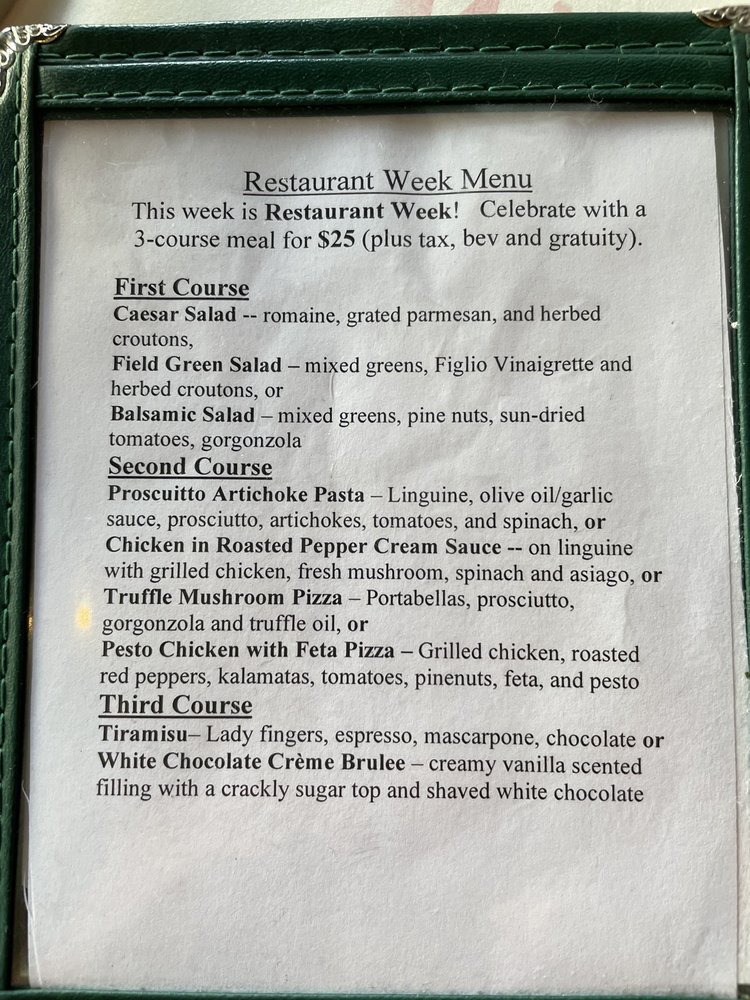 Restaurant Week Menu
This week is Restaurant Week! Celebrate with a
3-course meal for $25 (plus tax, bev and gratuity).
First Course
Caesar Salad -- romaine, grated parmesan, and herbed
croutons,
Field Green Salad – mixed greens, Figlio Vinaigrette and
herbed croutons, or
Balsamic Salad – mixed greens, pine nuts, sun-dried
tomatoes, gorgonzola
Second Course
Proscuitto Artichoke Pasta – Linguine, olive oil/garlic
sauce, prosciutto, artichokes, tomatoes, and spinach, or
Chicken in Roasted Pepper Cream Sauce -- on linguine
with grilled chicken, fresh mushroom, spinach and asiago, or
Truffle Mushroom Pizza – Portabellas, prosciutto,
gorgonzola and truffle oil, or
Pesto Chicken with Feta Pizza – Grilled chicken, roasted
red peppers, kalamatas, tomatoes, pinenuts, feta, and pesto
Third Course
Tiramisu– Lady fingers, espresso, mascarpone, chocolate or
White Chocolate Crème Brulee – creamy vanilla scented
filling with a crackly sugar top and shaved white chocolate